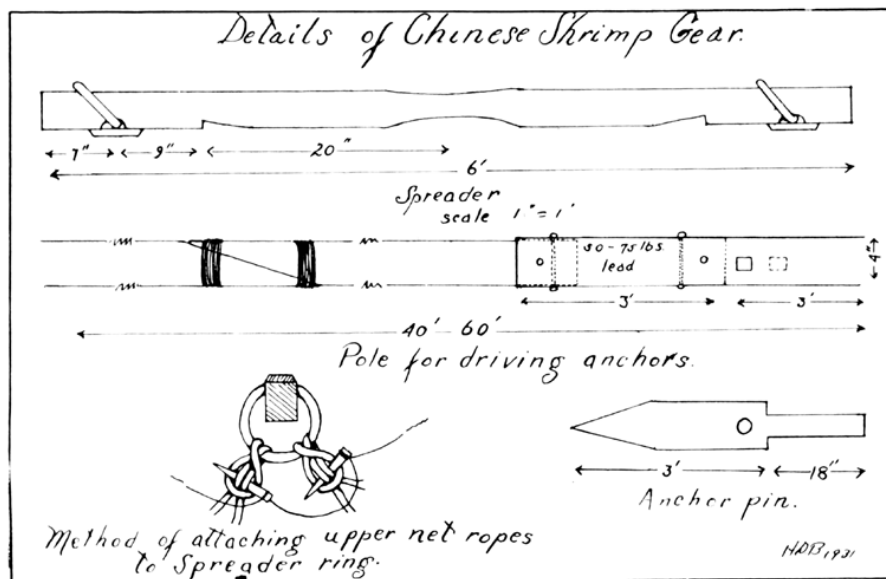 Details of Chinese Shrimp Gear.
7" 9" 20"
6'
Spreader
scale 1" = 1'
50-75 lbs.
lead
4"
3' 3'
40' - 60'
Pole for driving anchors.
3' 18"
Anchor pin.
Method of attaching upper net ropes
to Spreader ring.
HDB 1931